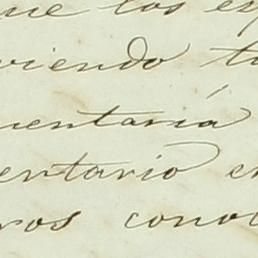 ue los es
viendo t
mentaría
entario e
ros cono